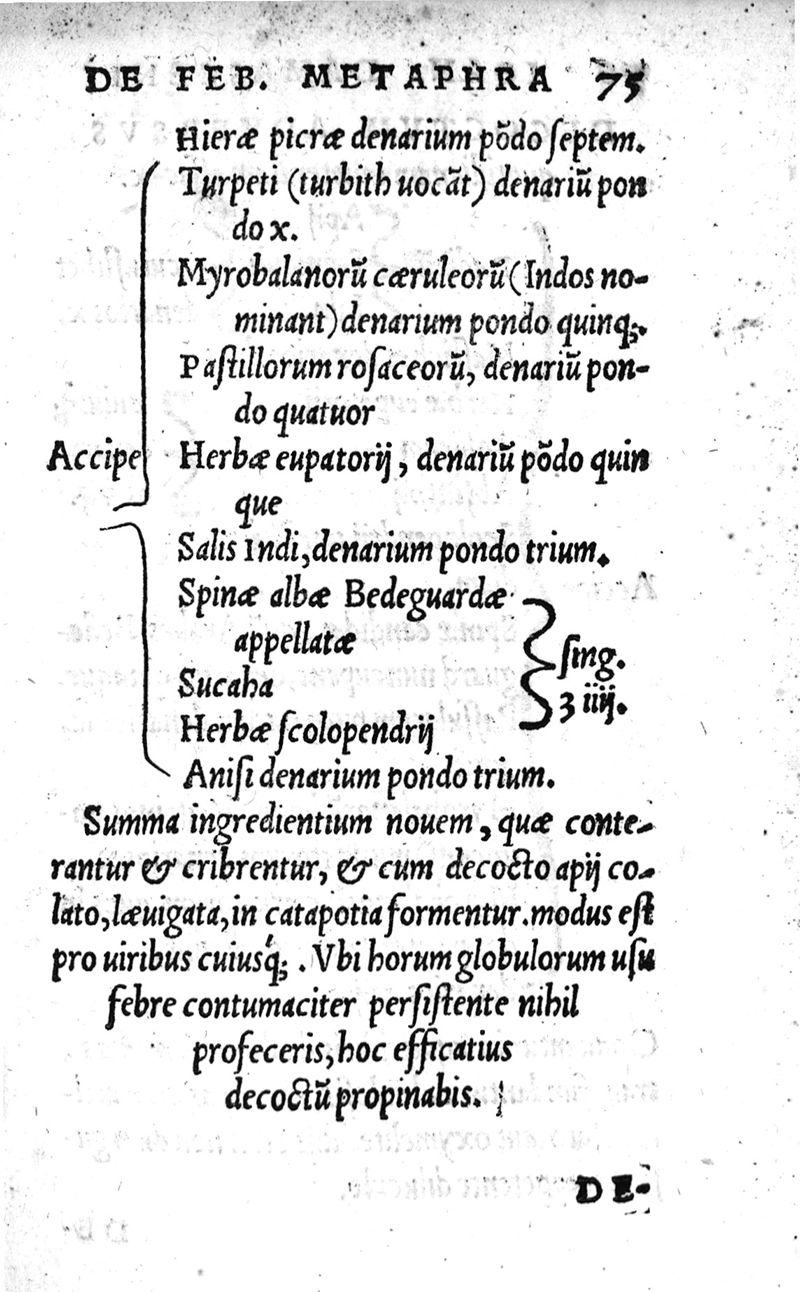 DE FEB. METAPHRA 75
Hieræ picræ denarium põdo ſeptem.
Turpeti (turbith uocãt) denariũ pon
do x.
Myrobalanorũ cæruleorũ (Indos no-
minant) denarium pondo quinq;.
Paſtillorum roſaceorũ, denariũ pon-
do quatuor
Accipe Herbæ eupatorij, denariũ põdo quin
que
Salis Indi, denarium pondo trium.
Spinæ albæ Bedeguardæ
appellatæ
ſing.
Sucaha
ʒ iiij.
Herbæ ſcolopendrij
Aniſi denarium pondo trium.
Summa ingredientium nouem, quæ conte-
rantur & cribrentur, & cum decocto apij co-
lato, læuigata, in catapotia formentur. modus eſt
pro uiribus cuiusq́;. Vbi horum globulorum uſu
febre contumaciter perſiſtente nihil
profeceris, hoc efficatius
decoctũ propinabis.
DE-